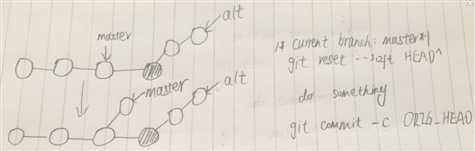 alt
master
master
alt
/* current branch: master */
git reset --soft HEAD^
do something
git commit -c ORIG_HEAD